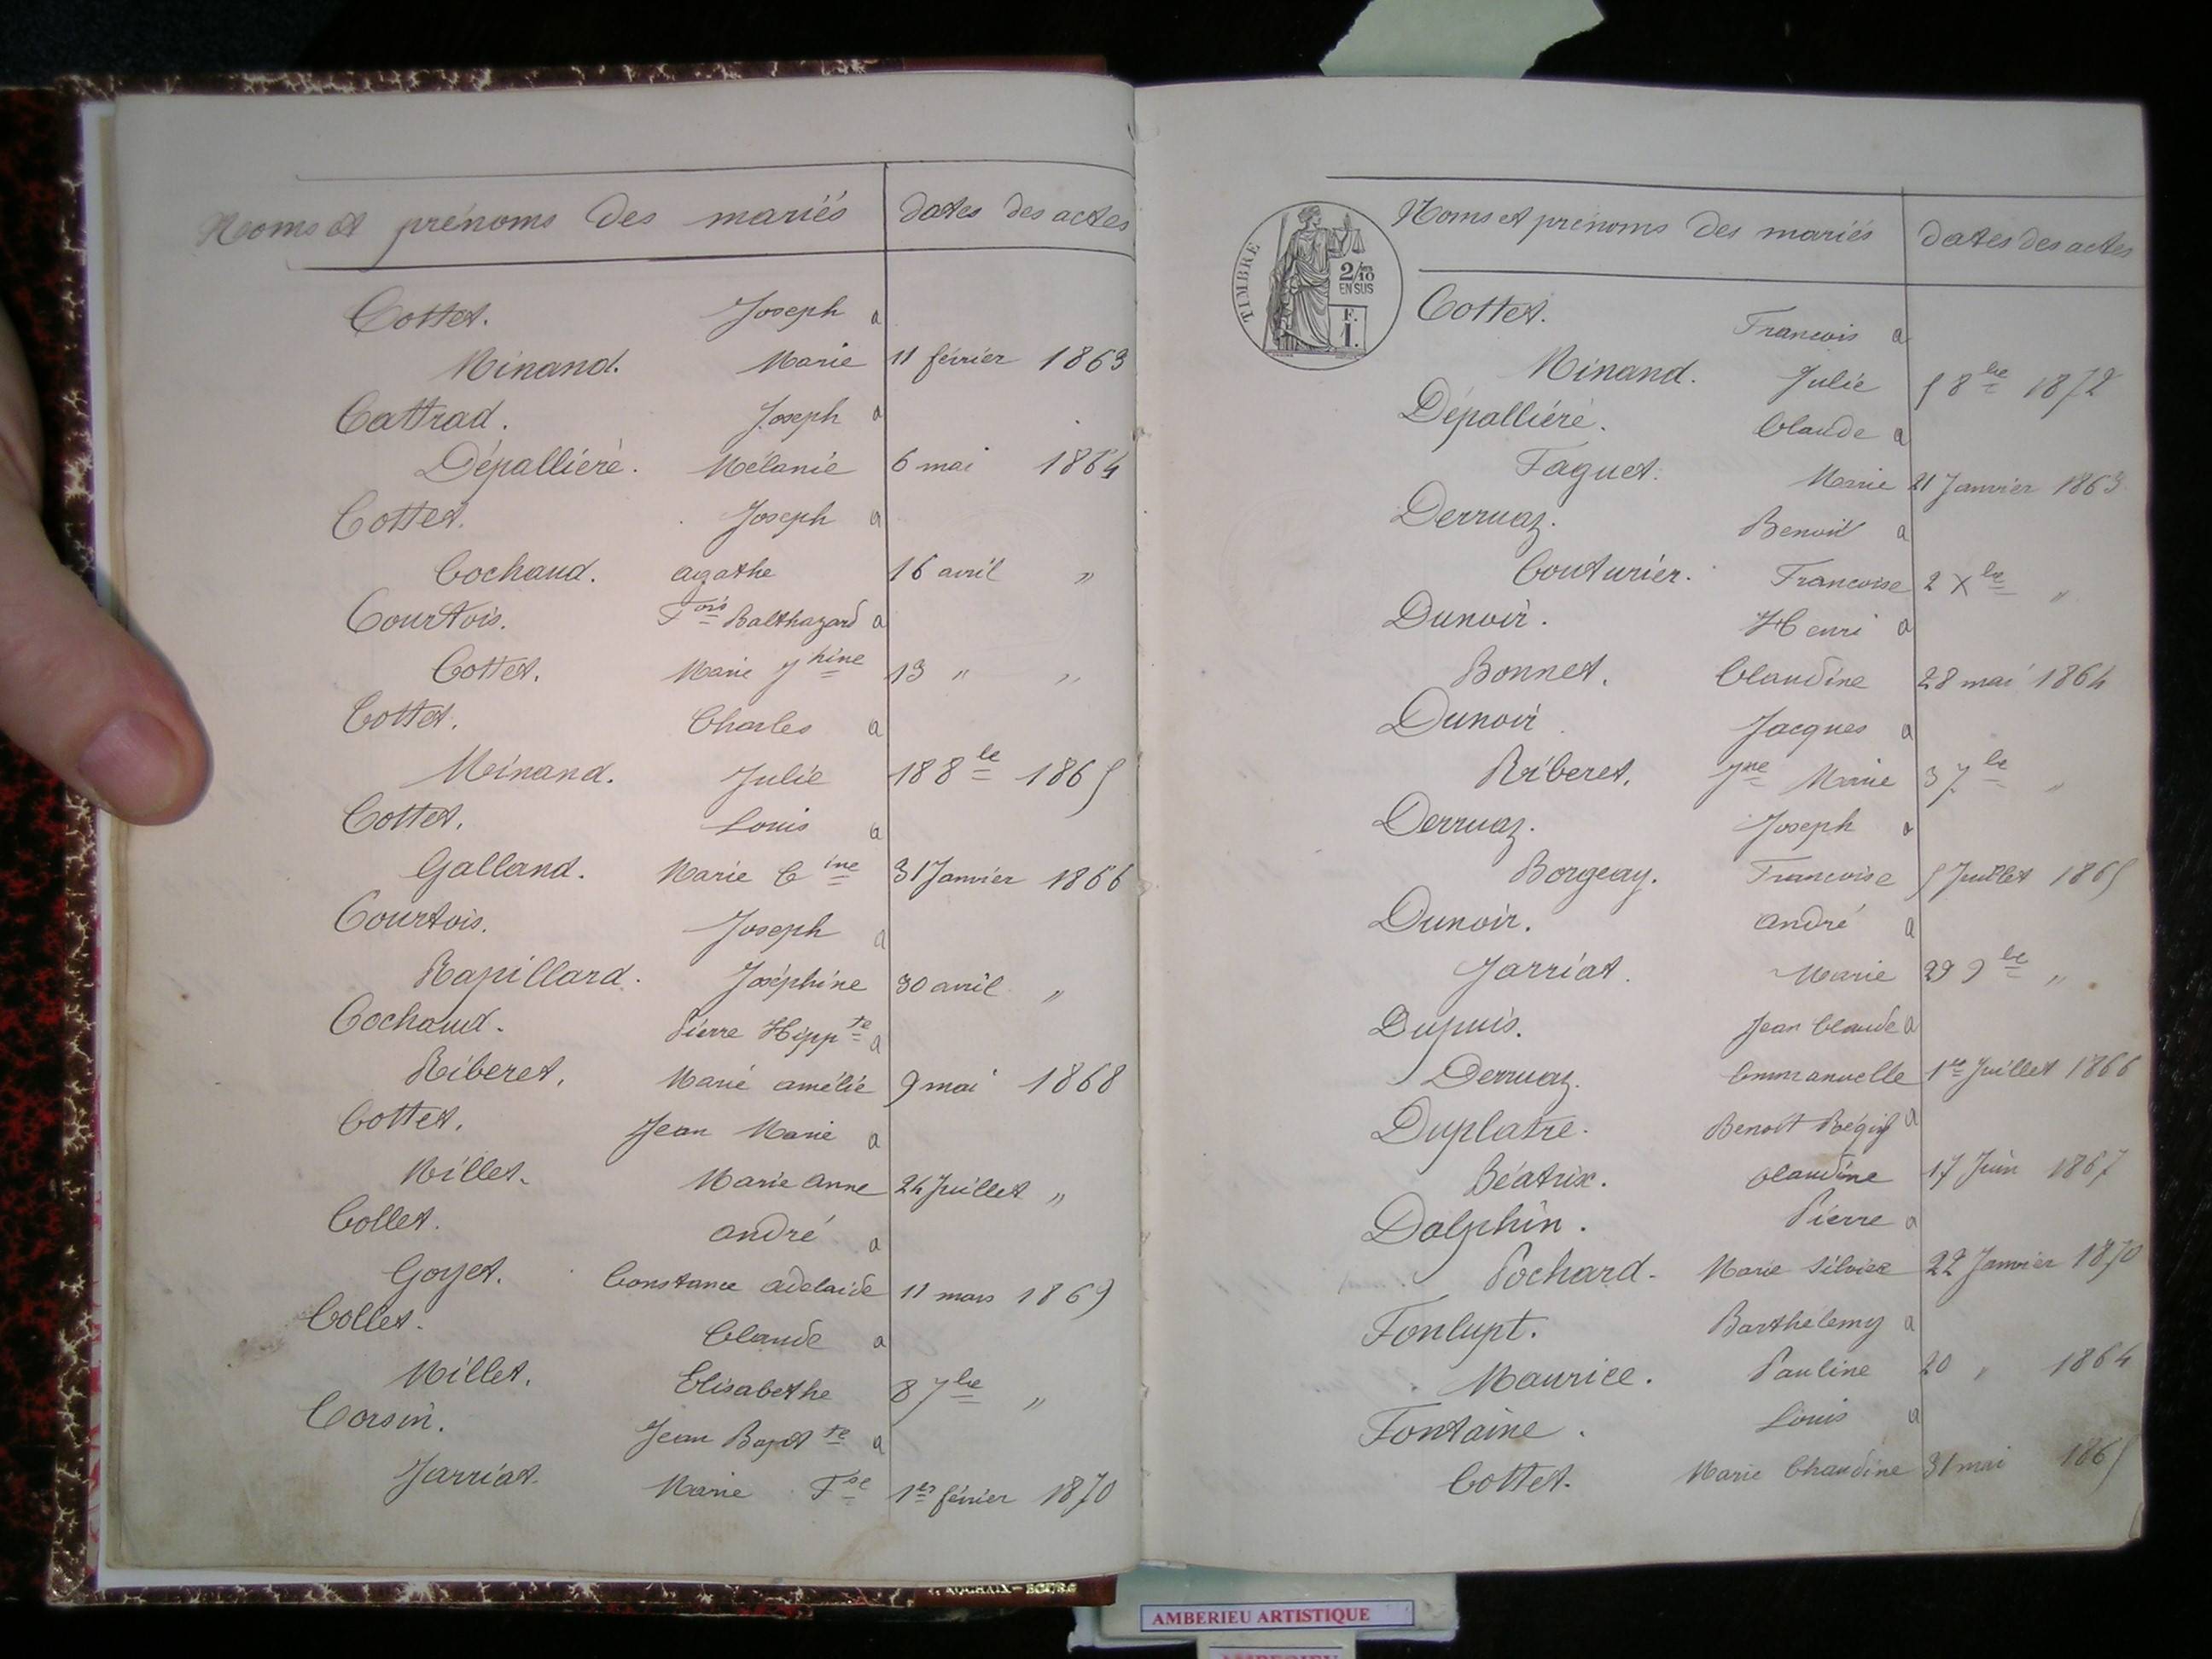 Noms et prénoms des mariés dates des actes
Cottet. Joseph a
Minand. Marie 11 février 1863
Cattrad. Joseph a
Dépallière. Mélanie 6 mai 1864
Cottet. Joseph a
Cochaud. agathe 16 avril "
Courtois. Fois Balthazard a
Cottet. Marie Jhine 13 " "
Cottet. Charles a
Meinand. Julie 18 8bre 1865
Cottet. Louis a
Galland. Marie Cine 31 Janvier 1866
Courtois. Joseph a
Rapillard. Joséphine 30 avril "
Cochaud. Pierre Hippte a
Riberet. Marie amélie 9 mai 1868
Cottet. Jean Marie a
Millet. Marie anne 24 Juillet "
Collet. andré a
Goyet. Constance adelaide 11 mars 1869
Collet. Claude a
Millet. Elisabethe 8 7bre "
Corsin. Jean Baptte a
Jarriat. Marie Fse 1er février 1870
TIMBRE
2/10 EN SUS
F. 1.
Noms et prénoms des mariés dates des actes
Cottet. Francois a
Minand. Julie 5 8bre 1872
Dépallière. Claude a
Faguet. Marie 21 Janvier 1863
Derruaz. Benoit a
Couturier. Francoise 2 Xbre "
Dunoir. Henri a
Bonnet. Claudine 28 mai 1864
Dunoir Jacques a
Riberet. Jne Marie 3 7bre "
Derruaz. Joseph a
Borgeay. Francoise 5 Juillet 1865
Dunoir. andré a
Jarriat. Marie 29 9bre "
Dupuis. Jean Claude a
Derruaz. Emmanuelle 1er Juillet 1866
Duplatre. Benoit Régis a
Béatrix. Claudine 17 Juin 1867
Dalphin. Pierre a
Pochard. Marie Silvier 22 Janvier 1870
Fonlupt. Barthelemy a
Maurice. Pauline 20 " 1864
Fontaine. Louis a
Cottet. Marie Claudine 31 mai 1865
AMBERIEU ARTISTIQUE